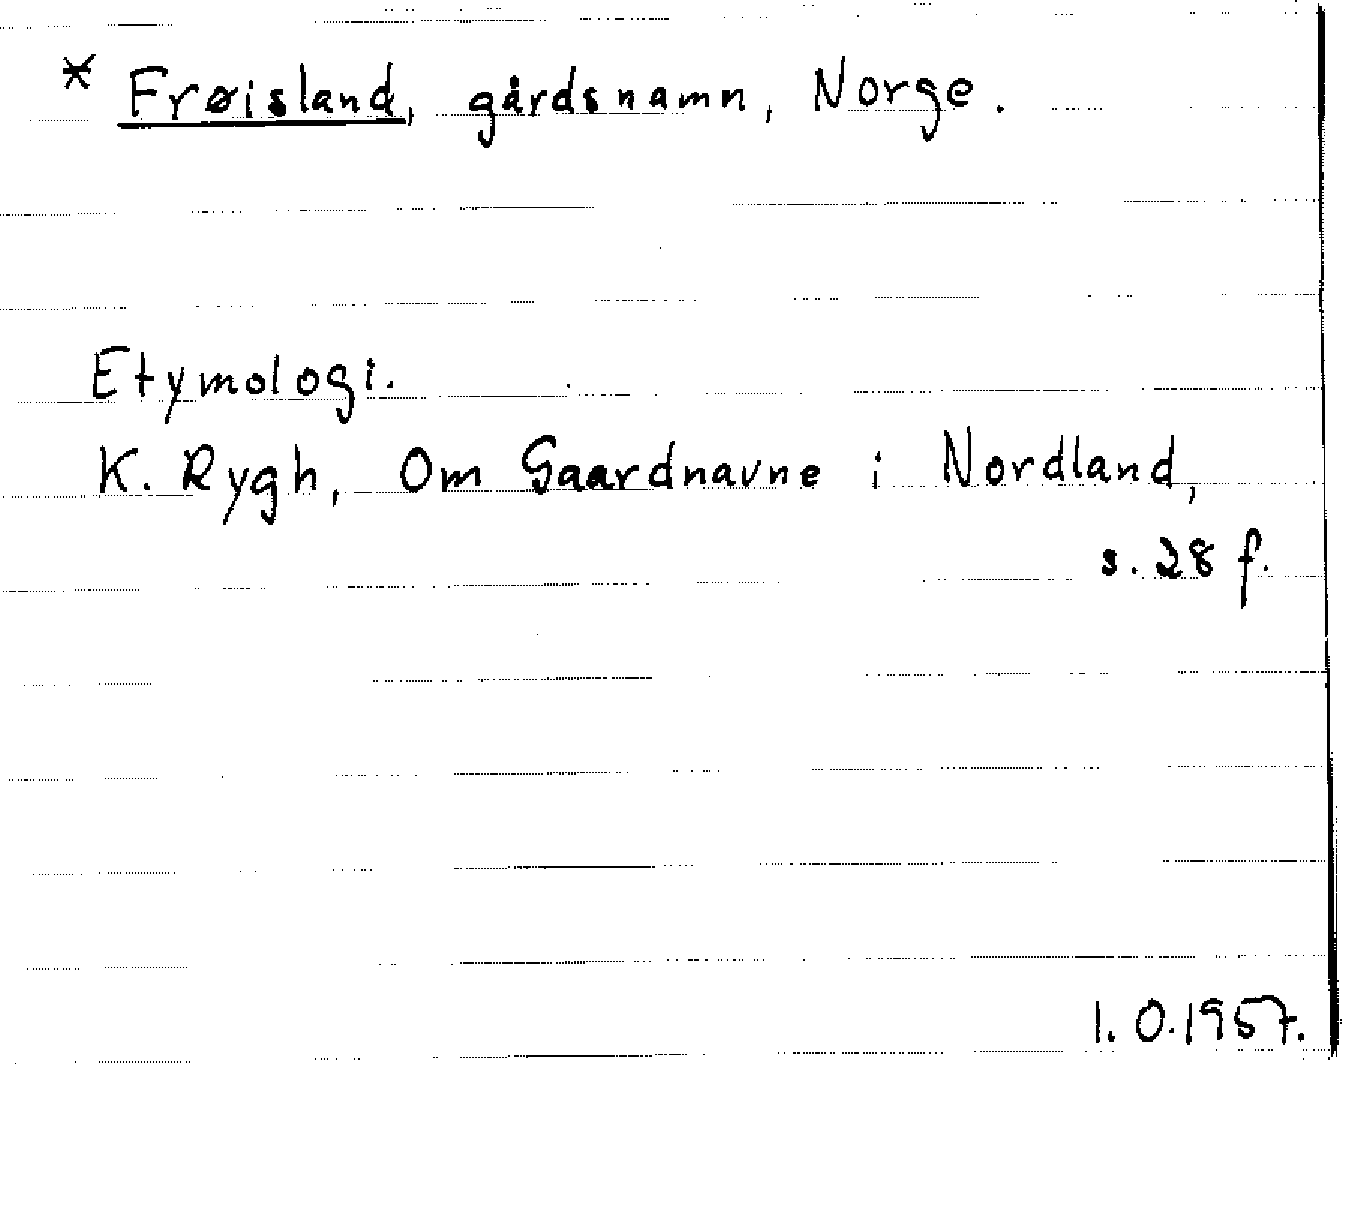 * Frøisland, gårdsnamn, Norge.
Etymologi.
K. Rygh, Om Gaardnavne i Nordland,
s. 28 f.
I. O. 1957.